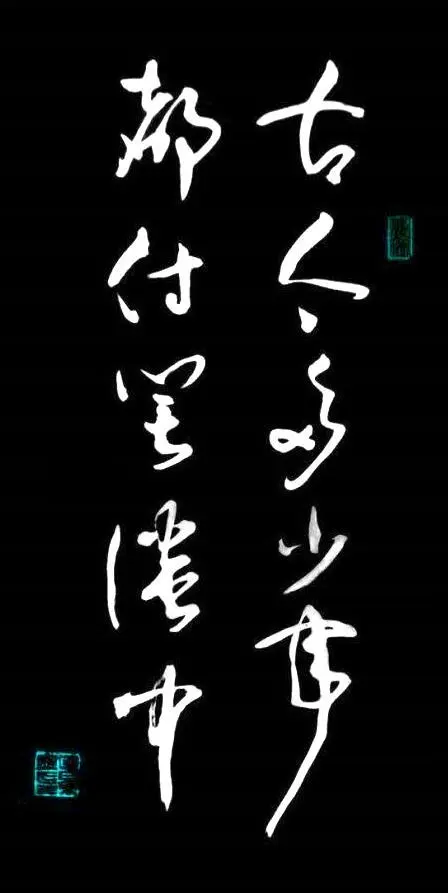 古今多少事
都付笑谈中